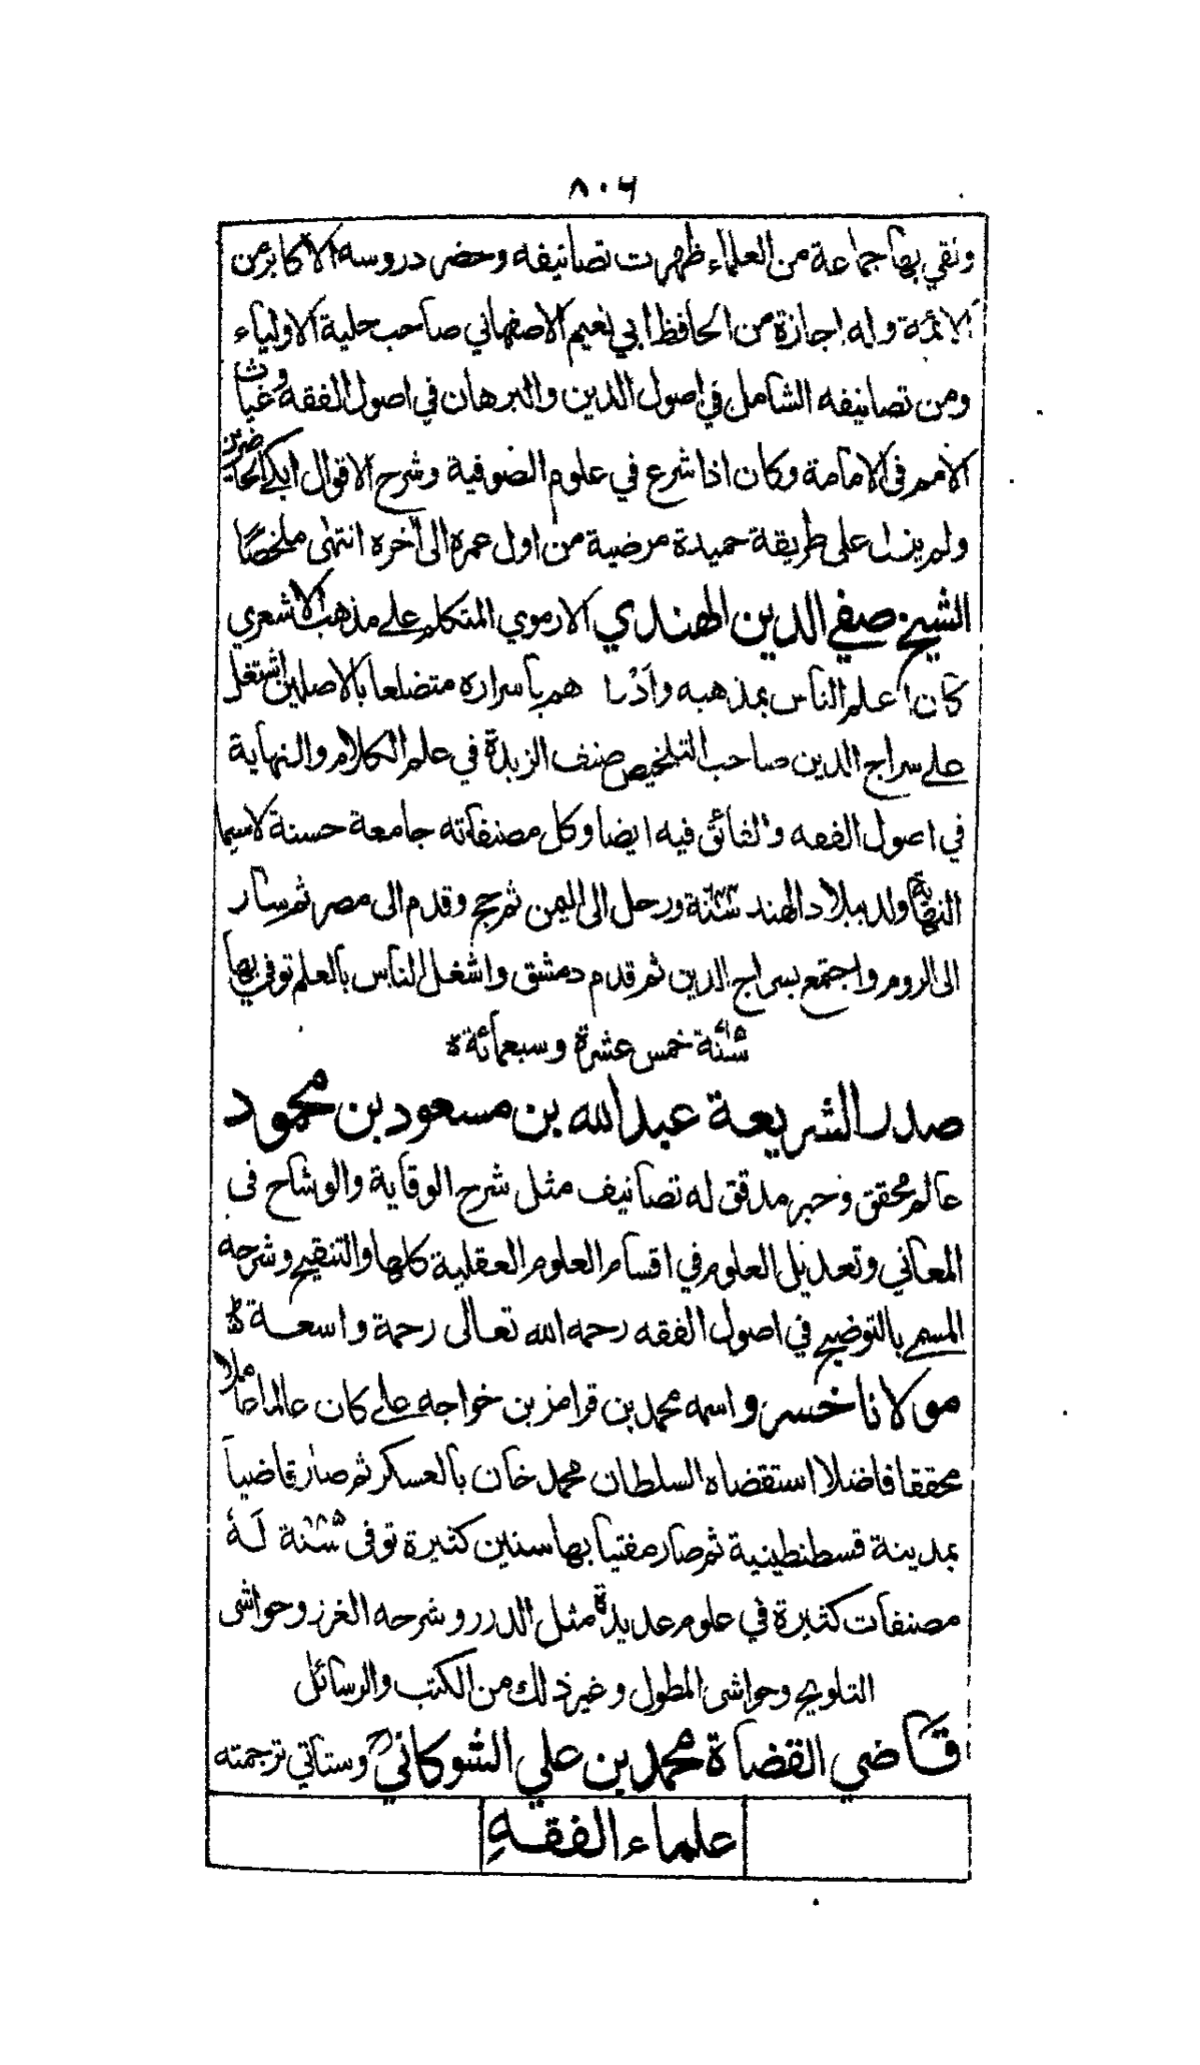 ٨٠٦
ونقي بها جماعة من العلماء ظهرت تصانيفه وحضر دروسه الاكابر من
الائمة وله اجازة من الحافظ ابي نعيم الاصفهاني صاحب حلية الاولياء
ومن تصانيفه الشامل في اصول الدين والبرهان في اصول الفقه وغياث
الامم في الامامة وكان اذا شرع في علوم الصوفية وشرح الاقوال ابكى الحاضرين
ولم يزل على طريقة حميدة مرضية من اول عمره الى آخره انتهى ملخصًا
الشيخ صفي الدين الهندي الارموي المتكلم على مذهب الاشعري
كان اعلم الناس بمذهبه وادراهم باسراره متضلعا بالاصلين اشتغل
على سراج الدين صاحب التلخيص صنف الزبدة في علم الكلام والنهاية
في اصول الفقه والفائق فيه ايضا وكل مصنفاته جامعة حسنة لاسيما
النهاية ولد ببلاد الهند سنة ورحل الى اليمن ثم حج وقدم الى مصر ثم سار
الى الروم واجتمع بسراج الدين ثم قدم دمشق واشغل الناس بالعلم توفي بها
سنة خمس عشرة وسبعمائة
صدر الشريعة عبد الله بن مسعود بن محمود
عالم محقق وحبر مدقق له تصانيف مثل شرح الوقاية والوشاح في
المعاني وتعديل العلوم في اقسام العلوم العقلية كلها والتنقيح وشرحه
المسمى بالتوضيح في اصول الفقه رحمه الله تعالى رحمة واسعة
مولانا خسرو واسمه محمد بن قرامز بن خواجه علي كان عالما عاملا
محققا فاضلا استقضاه السلطان محمد خان بالعسكر ثم صار قاضيا
بمدينة قسطنطينية ثم صار مفتيا بها سنين كثيرة توفى سنة له
مصنفات كثيرة في علوم عديدة مثل الدرر وشرحه الغرر وحواشى
التلويح وحواشى المطول وغير ذلك من الكتب والرسائل
قاضي القضاة محمد بن علي الشوكاني وستاتي ترجمته
علماء الفقه